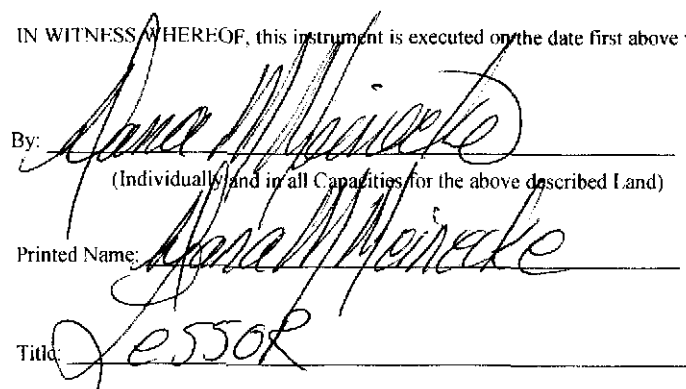 IN WITNESS WHEREOF, this instrument is executed on the date first above
By: Dana M Meinecke
(Individually and in all Capacities for the above described Land)
Printed Name: Dana M Meinecke
Title: Lessor